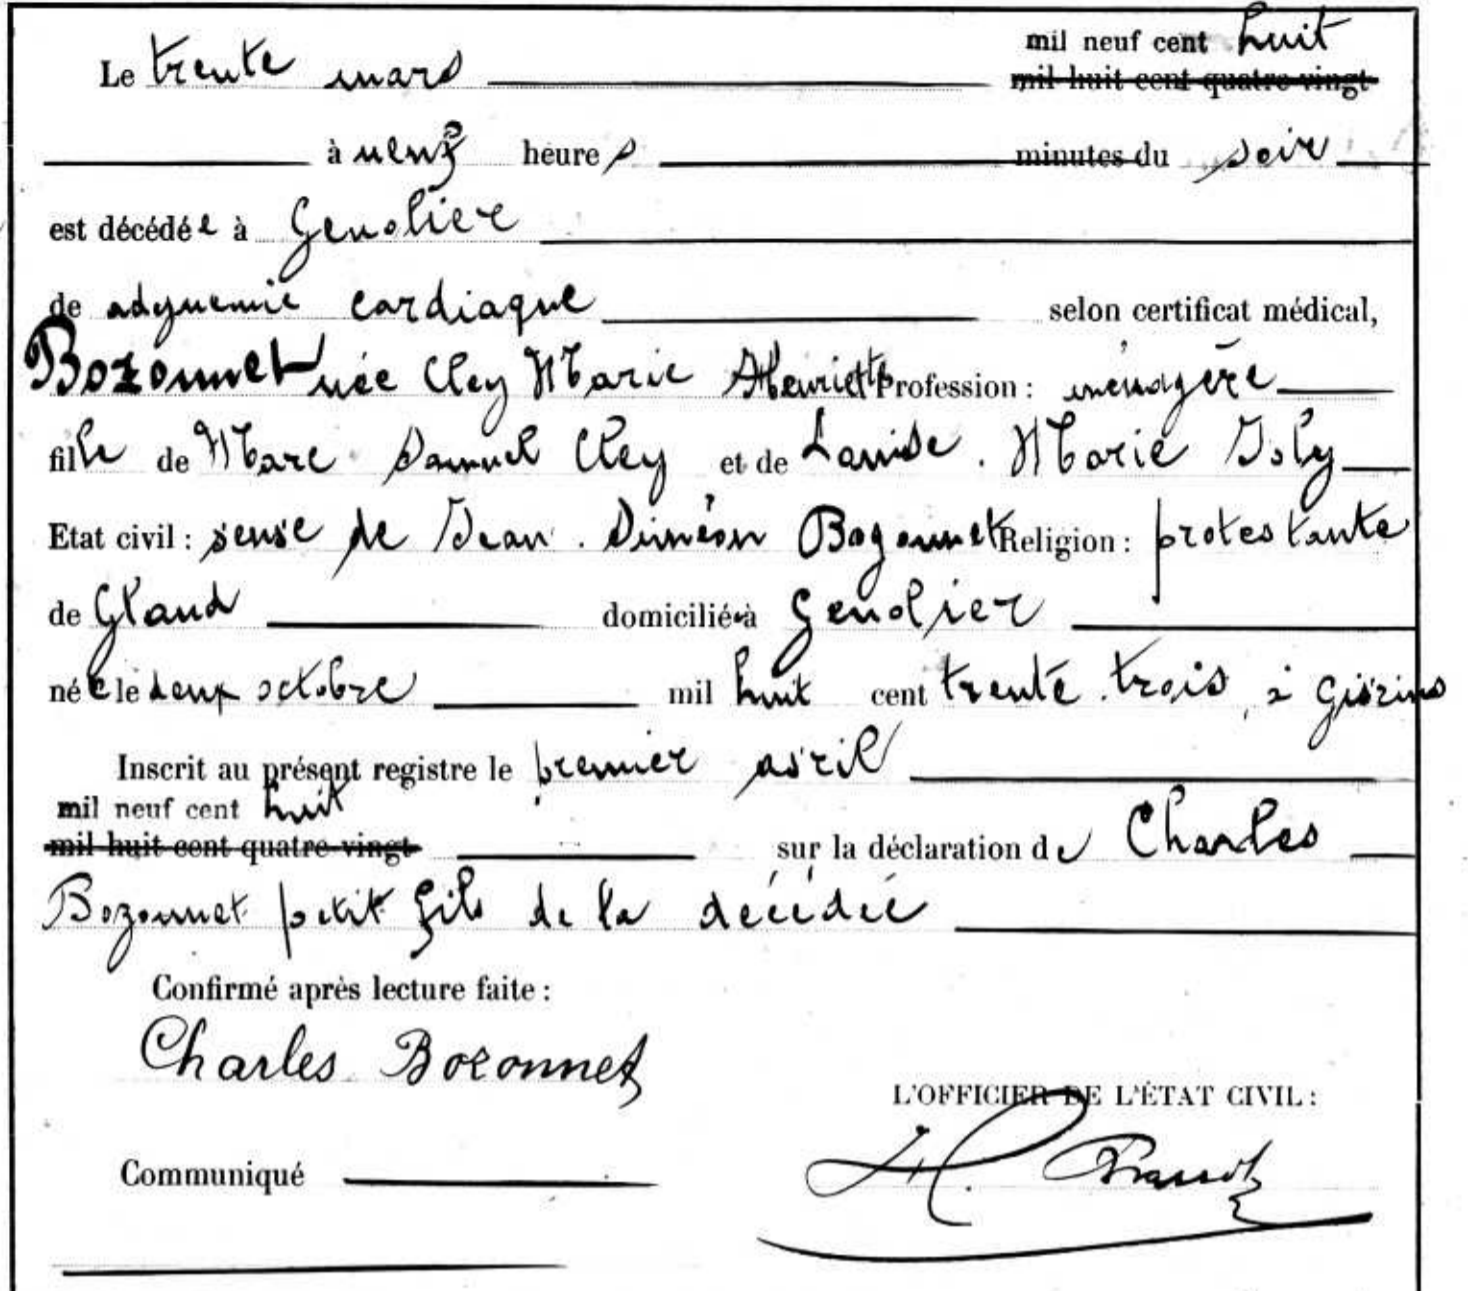 mil neuf cent huit
Le trente mars mil huit cent quatre-vingt
à neuf heures minutes du soir
est décédée à Genolier
de adynemie cardiaque selon certificat médical,
Bozonnet née Cley Marie Henriette Profession : ménagère
fille de Marc Samuel Cley et de Louise Marie Joly
Etat civil : veuve de Jean Siméon Bozonnet Religion : protestante
de Gland domicilié à Genolier
née le deux octobre mil huit cent trente trois, à Givrins
Inscrit au présent registre le premier avril
mil neuf cent huit
mil huit cent quatre-vingt sur la déclaration de Charles
Bozonnet petit fils de la décédée
Confirmé après lecture faite :
Charles Bozonnet
L'OFFICIER DE L'ÉTAT CIVIL :
Communiqué